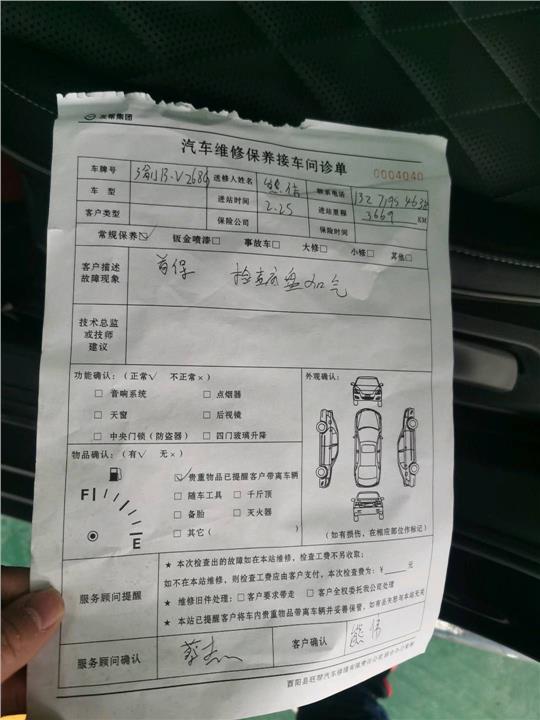 汽车维修保养接车问诊单
0004040
车牌号 送修人姓名 联系电话
车型 进站时间 2.25 进站里程 3669 KM
客户类型 保险公司 保险时间
常规保养☑ 钣金喷漆□ 事故车□ 大修□ 小修□ 其他□
客户描述故障现象 首保 检查底盘加气
技术总监或技师建议
功能确认:(正常√ 不正常×) 外观确认:
□ 音响系统 □ 点烟器
□ 天窗 □ 后视镜
□ 中央门锁(防盗器) □ 四门玻璃升降
物品确认:(有√ 无×)
☑ 贵重物品已提醒客户带离车辆
□ 随车工具 □ 千斤顶
□ 备胎 □ 灭火器
□ 其它( )
F E
(如有损伤,在相应部位作标记)
服务顾问提醒
★ 本次检查出的故障如在本站维修,检查工费不另收取;
如不在本站维修,则检查工费应由客户支付,本次检查费为:¥ 元
★ 维修旧件处理:□ 客户要求带走 □ 客户全权委托我公司处理
★ 本站已提醒客户将车内贵重物品带离车辆并妥善保管,如有丢失恕与本站无关
服务顾问确认 客户确认 熊伟